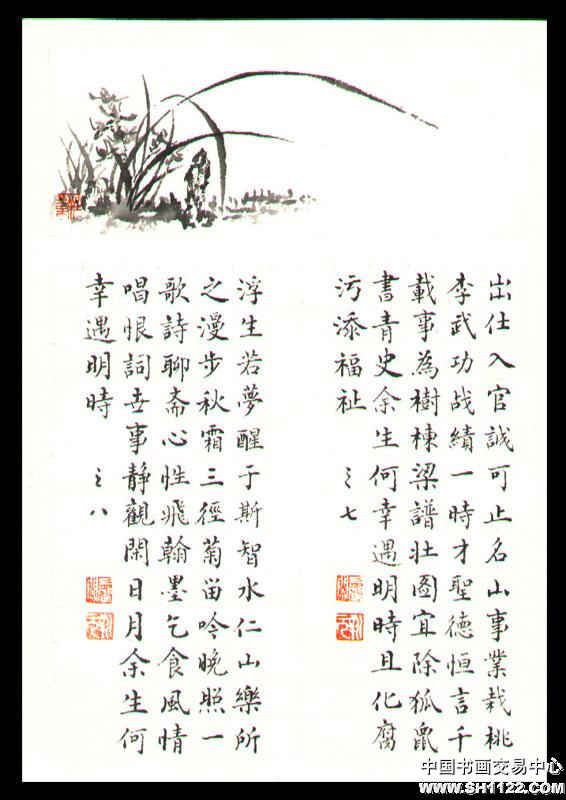 出仕入官誠可止名山事業栽桃
李武功战績一時才聖德恒言千
載事為樹棟梁譜壮图宜除狐鼠
書青史余生何幸遇明時且化腐
污添福祉 之七
浮生若夢醒于斯智水仁山樂所
之漫步秋霜三徑菊留吟晚照一
歌詩聊斋心性飛翰墨乞食風情
唱恨詞世事静觀閑日月余生何
幸遇明時 之八
中国书画交易中心
www.SH1122.com